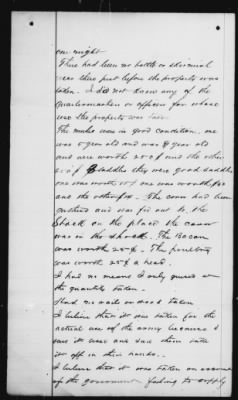 one might
There had been no battle or skirmish
near there just before the property was
taken. I did not know any of the
Quartermasters or officers for whose
use the property was
The mules were in good condition, one
was 5 year old and was 8 year old
and were worth 25 and the other
Saddles they were good saddles
one was worth 15 one was worth
and the other. The corn had been
gathered and was fed out to the
Stock on the place the corn
was in the shuck. The Bacon
was worth 25¢. The poultry
was worth 25¢ a head.
I had no means I only guess at
the quantity taken.
Had no rails or wood taken
I believe that it was taken for the
actual use of the army because I
saw it used and saw them take
it off in their hands.
I believe that it was taken on account
of the government failing to supply